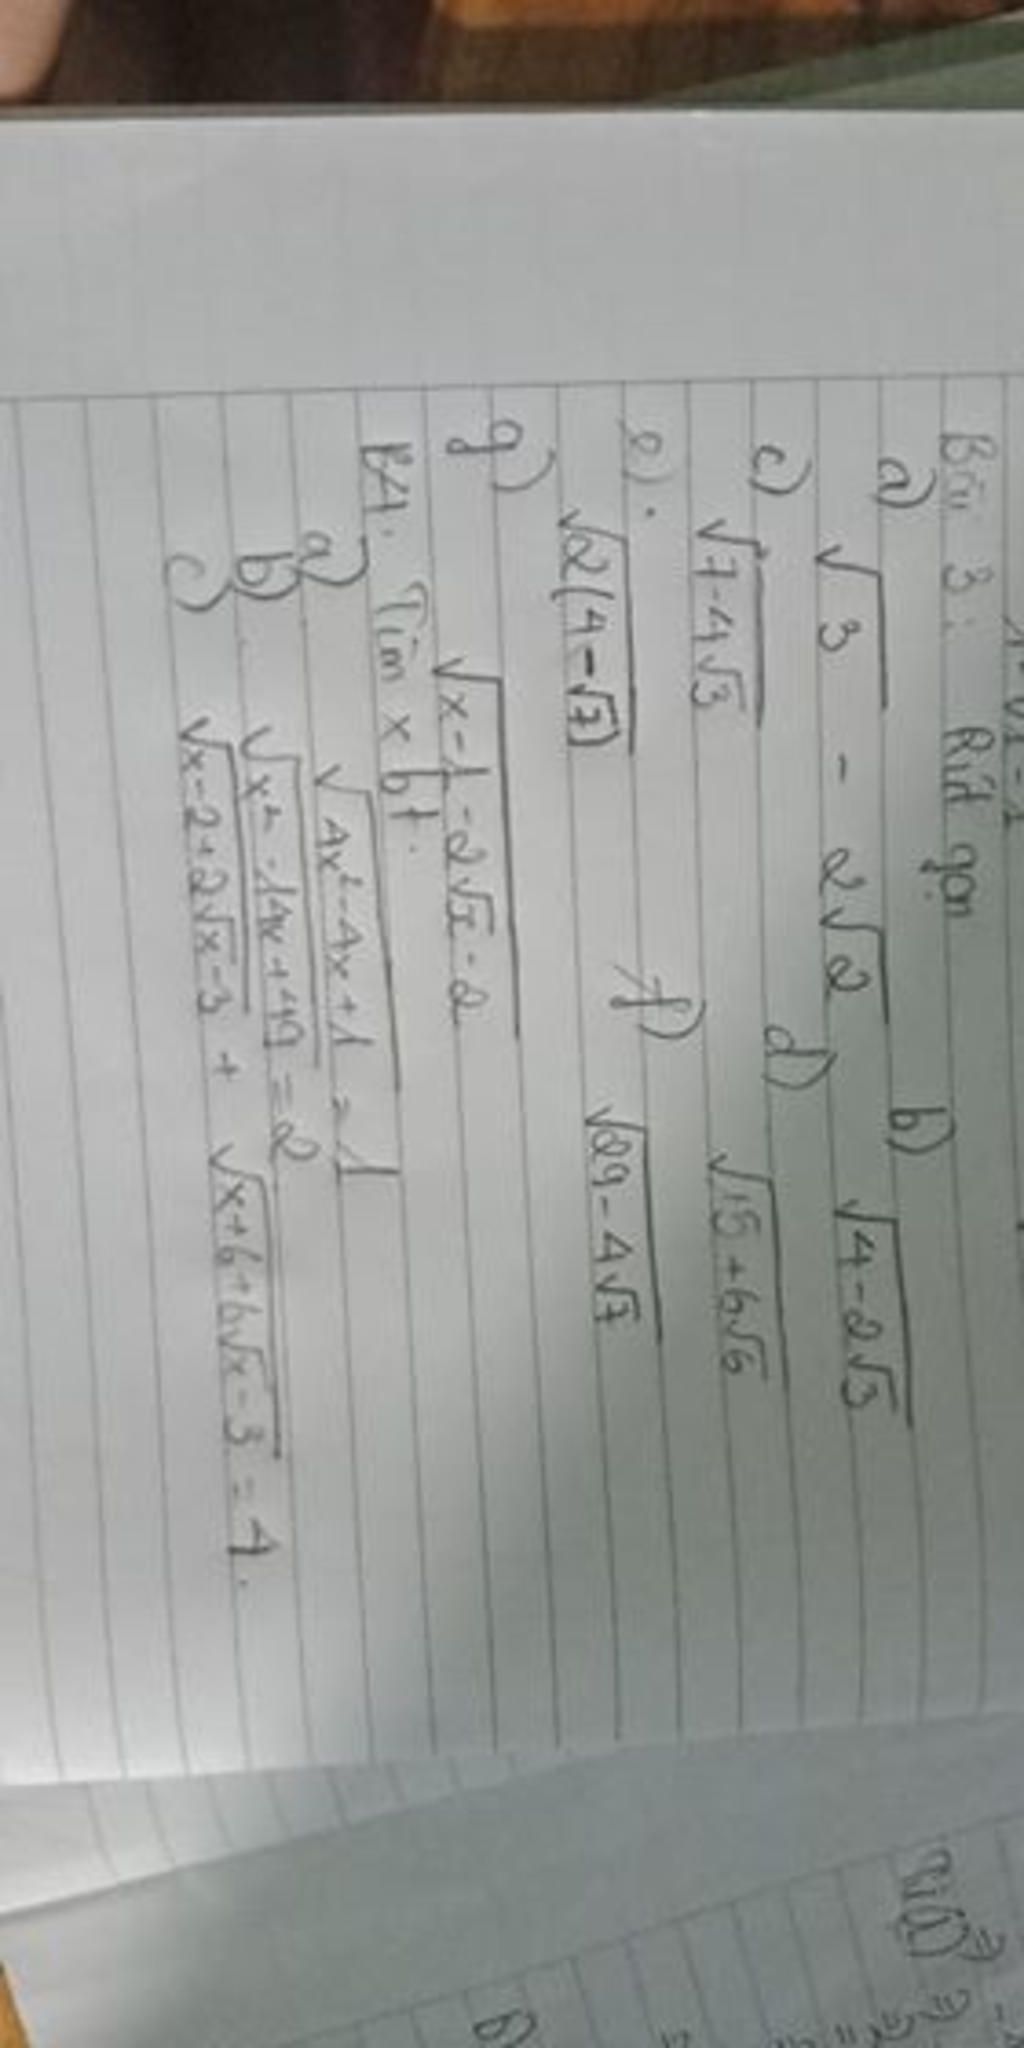 Bài 3: Rút gọn
a) √3 - 2√2 b) √4-2√3
c) √7-4√3 d) √15+6√6
e) √2(4-√7) f) √29-4√7
g) √x-1-2√x-2
B4. Tìm x bt.
a) √4x²-4x+1 = 1
b) √x²-14x+49 = 2
c) √x-2+2√x-3 + √x+6+6√x-3 = 4.